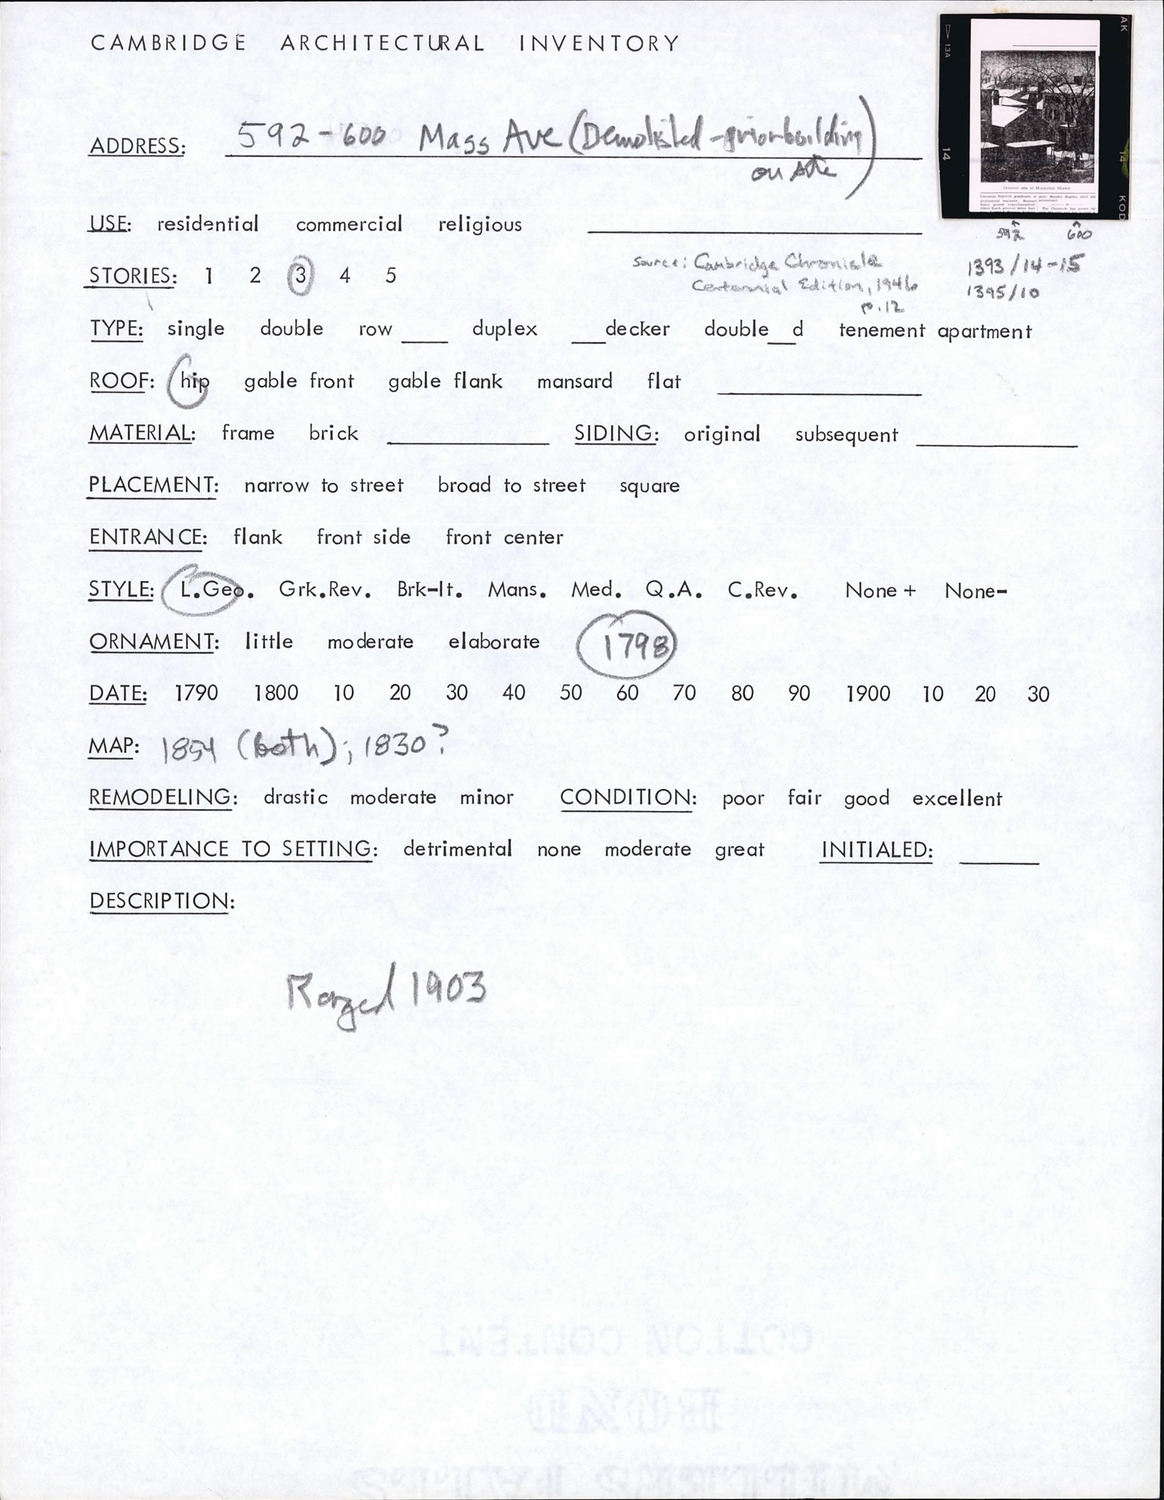 CAMBRIDGE ARCHITECTURAL INVENTORY
ADDRESS: 592-600 Mass Ave (Demolished-prior building
on site)
592 600
USE: residential commercial religious
Source: Cambridge Chronicle
Centennial Edition, 1946
p.12
1393/14-15
1395/10
STORIES: 1 2 3 4 5
TYPE: single double row___ duplex ___decker double__d tenement apartment
ROOF: hip gable front gable flank mansard flat
MATERIAL: frame brick SIDING: original subsequent
PLACEMENT: narrow to street broad to street square
ENTRANCE: flank front side front center
STYLE: L.Geo. Grk.Rev. Brk-It. Mans. Med. Q.A. C.Rev. None+ None-
ORNAMENT: little moderate elaborate 1798
DATE: 1790 1800 10 20 30 40 50 60 70 80 90 1900 10 20 30
MAP: 1854 (both); 1830?
REMODELING: drastic moderate minor CONDITION: poor fair good excellent
IMPORTANCE TO SETTING: detrimental none moderate great INITIALED:
DESCRIPTION:
Razed 1903
COTTON CONTENT
BOND
13A
14
14